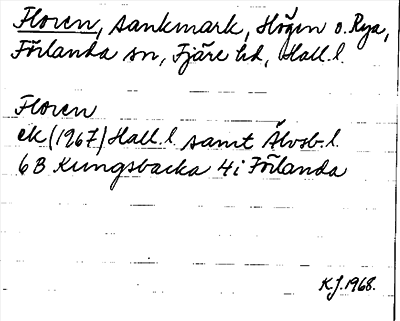 Floren, sankmark, Högen o. Rya,
Förlanda sn, Fjäre hd, Hall. l.
Floren
ek (1967) Hall. l. samt Älvsb. l.
6 B Kungsbacka 4 i Förlanda
K.J. 1968.